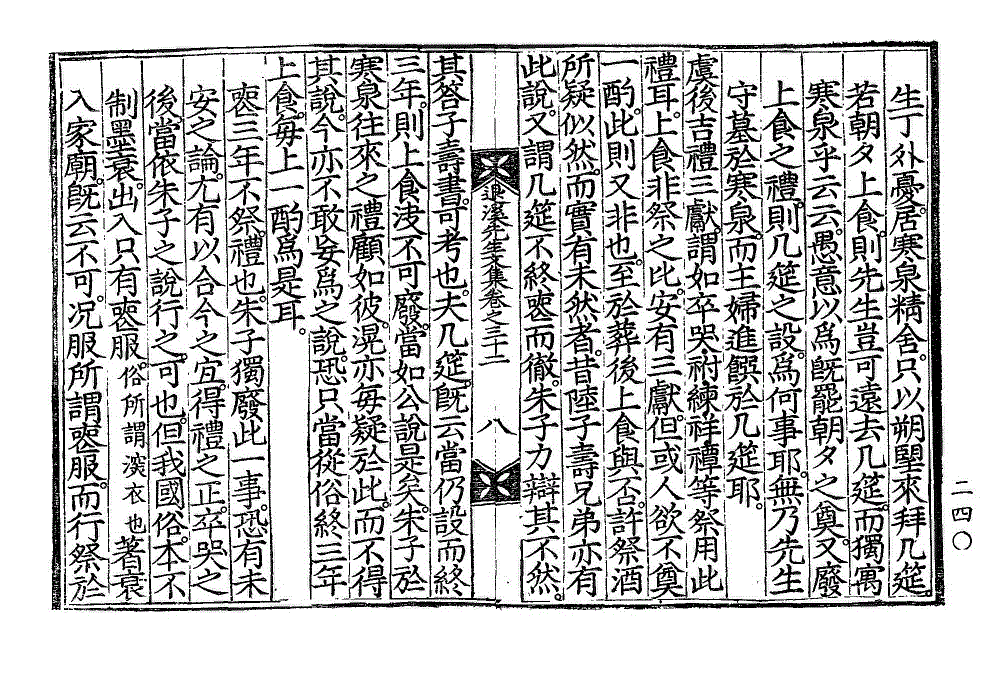 生丁外憂。居寒泉精舍。只以朔朢來拜几筵。
若朝夕上食。則先生豈可遠去几筵。而獨寓
寒泉乎云云。愚意以爲旣罷朝夕之奠。又廢
上食之禮。則几筵之設。爲何事耶。無乃先生
守墓於寒泉。而主婦進饌於几筵耶。
虞後吉禮三獻。謂如卒哭,祔,練,祥,禫等祭用此
禮耳。上食非祭之比。安有三獻。但或人欲不奠
一酌。此則又非也。至於葬後上食與否。許祭酒
所疑似然。而實有未然者。昔陸子壽兄弟亦有
此說。又謂几筵不終喪而徹。朱子力辯其不然。
退溪先生文集卷之三十二
八
其答子壽書。可考也。夫几筵。旣云當仍設而終
三年。則上食決不可廢。當如公說是矣。朱子於
寒泉往來之禮顧如彼。滉亦每疑於此。而不得
其說。今亦不敢妄爲之說。恐只當從俗終三年
上食。每上一酌爲是耳。
喪三年不祭。禮也。朱子獨廢此一事。恐有未
安之論。尤有以合今之宜。得禮之正。卒哭之
後。當依朱子之說行之。可也。但我國俗。本不
制墨衰。出入只有喪服。俗所謂深衣也 著衰
入家廟。旣云不可。況服所謂喪服。而行祭於
二四〇